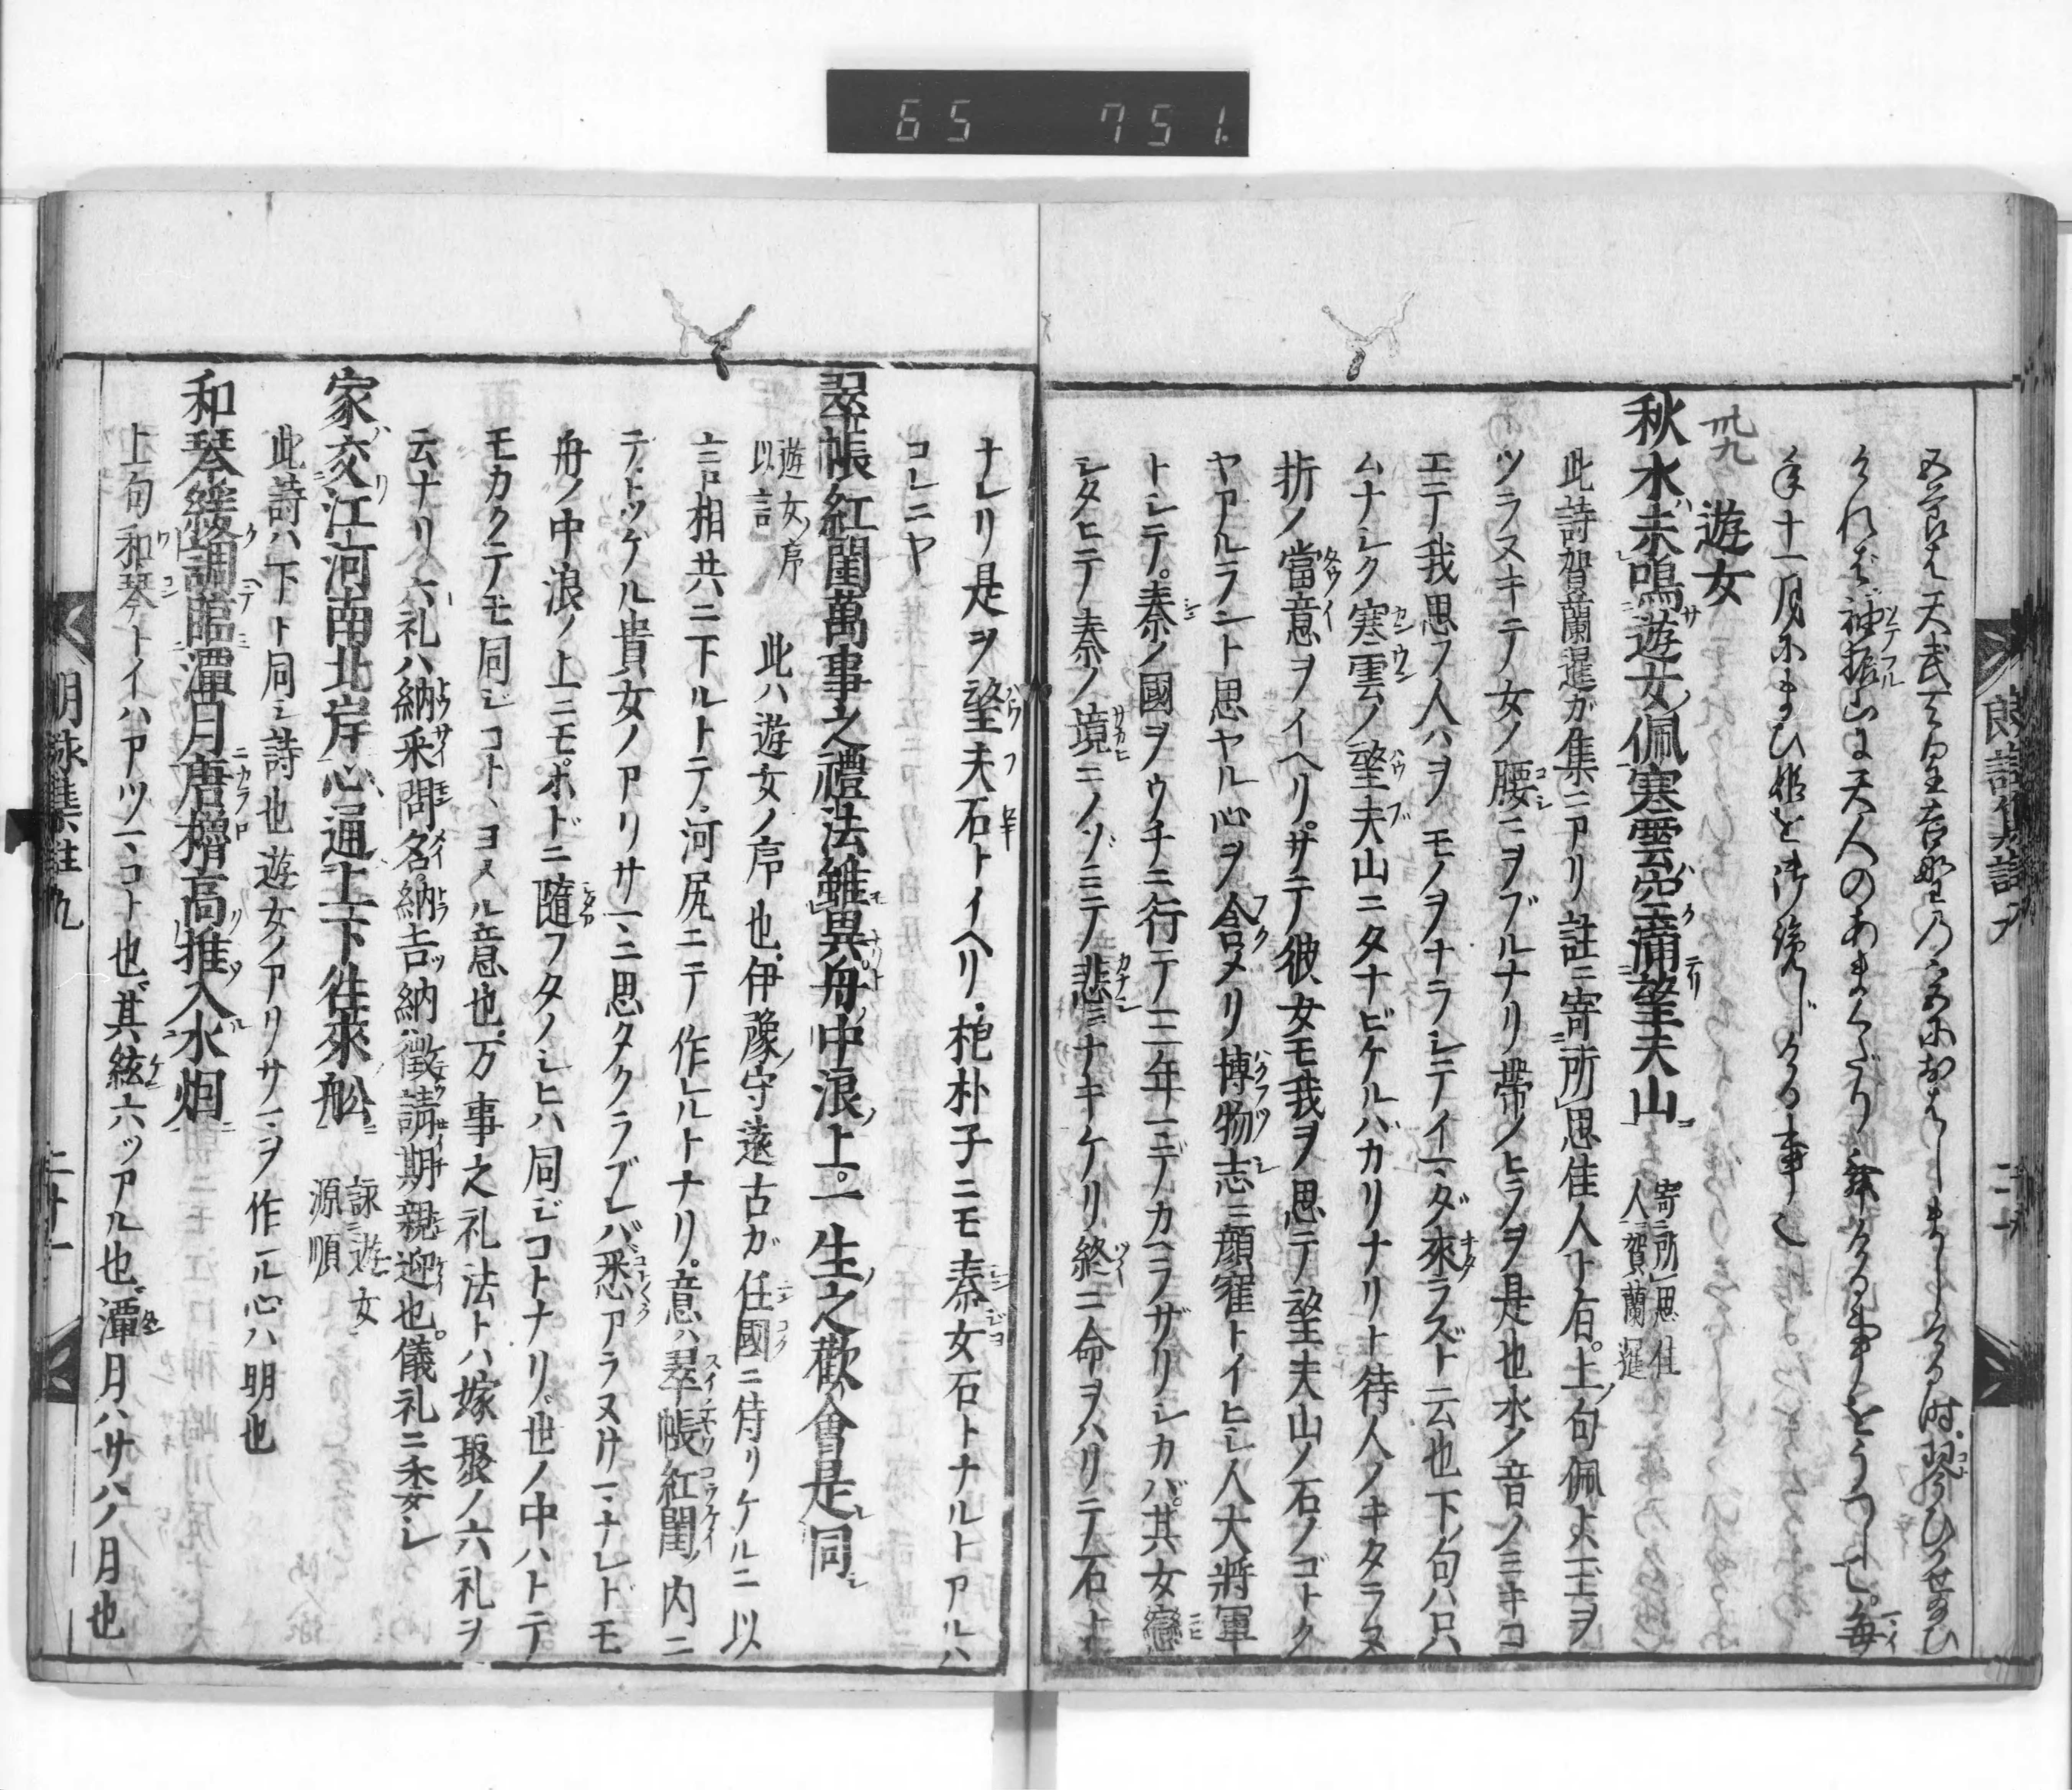 65 751.
五節は天武天皇吉野乃宮におはしましける時琴ひかせ給ひ
けれど袖振山に天人のあまくだり舞ける事をうつして毎
年十一月にまひ姫を御覧じける事也
卅九 遊女
秋水未鳴遊女佩寒雲空満望夫山 寄所思佳人 賀蘭暹
此詩賀蘭暹ガ集ニアリ註ニ寄所思佳人ト右上ノ句佩ハ玉ヲ
ツラヌキテノ女ノ腰ニヲブルナリ帯ノヒラヲ是也水ノ音ノミキコ
エテ我思フ人ハヲモノヲナラシテイマダ來ラズト云也下句ハ只
ムナシク寒雲ノ望夫山ニタナビケルバカリナリト待人ノキタラヌ
折ノ當意ヲノイヘリサテ彼女モ我ヲ思テ望夫山ノ石ノゴトク
ヤアルラント思ヤル心ヲ含メリ博物志ニ顔寉トイヒシ人大將軍
トシテ秦ノ國ヲウチニ行テ三年マデカヘラザリシカバ其女戀
シタヒテ秦ノ境ニノゾミテ悲ミナキケリ終ニ命ヲハリテ石ト
ナレリ是ヲ望夫石トイヘリ抱朴子ニモ秦女石トナルトアルハ
コレニヤ
翠帳紅閨萬事之禮法雖異舟中浪上一生之歡會是同
遊女序 以言 此ハ遊女ノ序也伊豫守遠古ガ任國ニ侍リケルニ以
言相共ニ下ルトテ河尻ニテ作レルトナリ意ハ翠帳紅閨ノ内ニ
テトツゲル貴女ノアリサマニ思タクラブレバ悉アラヌサマナレドモ
舟ノ中浪ノ上ニモホドニ隨フタノシヒハ同ジコトナリ世ノ中ハトテ
モカクテモ同ジコトヽヨメル意也万事之礼法トハ嫁娶ノ六礼ヲ
云ナリ六礼ハ納采問名納吉納徴請期親迎也儀礼ニ委シ
家交江河南北岸心通上下往來舩 詠遊女 源順
此詩ハ下ト同シ詩也遊女ノアリサマヲ作ル心ハ明也
和琴緩調臨潭月唐櫓高推入水烟
上句和琴トイハアヅマコト也其絃六ツアル也潭月ハサハノ月也
朗詠集註九 二十一